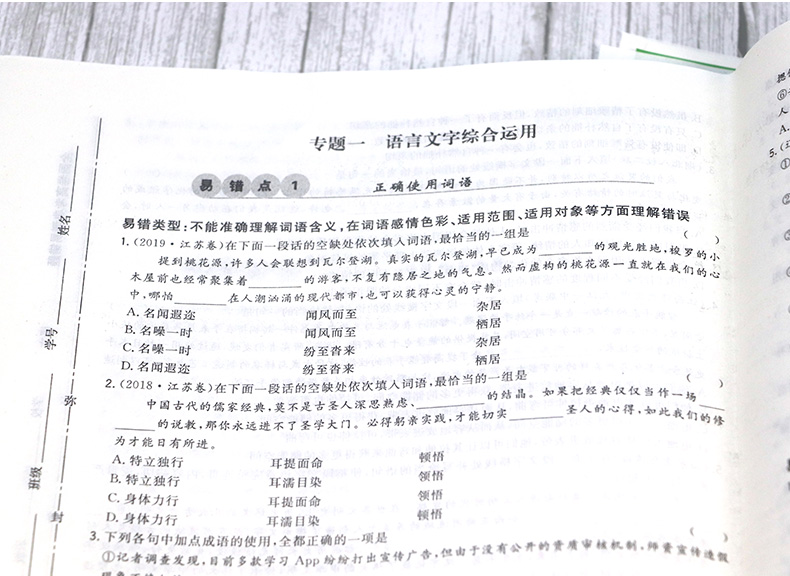 专题一 语言文字综合运用
易错点1 正确使用词语
易错类型：不能准确理解词语含义，在词语感情色彩、适用范围、适用对象等方面理解错误
1.(2019·江苏卷)在下面一段话的空缺处依次填入词语，最恰当的一组是 ( )
提到桃花源，许多人会联想到瓦尔登湖。真实的瓦尔登湖，早已成为______的观光胜地，梭罗的小
木屋前也经常聚集着______的游客，不复有隐居之地的气息。然而虚构的桃花源一直就在我们的心
中，哪怕______在人潮汹涌的现代都市，也可以获得心灵的宁静。
A.名闻遐迩 闻风而至 杂居
B.名噪一时 闻风而至 栖居
C.名噪一时 纷至沓来 杂居
D.名闻遐迩 纷至沓来 栖居
2.(2018·江苏卷)在下面一段话的空缺处依次填入词语，最恰当的一组是 ( )
中国古代的儒家经典，莫不是古圣人深思熟虑、______的结晶。如果把经典仅仅当作一场
______的说教，那你永远进不了圣学大门。必得躬亲实践，才能切实______圣人的心得，如此我们的修
为才能日有所进。
A.特立独行 耳提面命 顿悟
B.特立独行 耳濡目染 领悟
C.身体力行 耳提面命 领悟
D.身体力行 耳濡目染 顿悟
3.下列各句中加点成语的使用，全都正确的一项是 ( )
①记者调查发现，目前多款学习App纷纷打出宣传广告，但由于没有公开的资质审核机制，师资宣传造假
姓名
学号
班级
弥
封
5.
①
A.
人
⑥